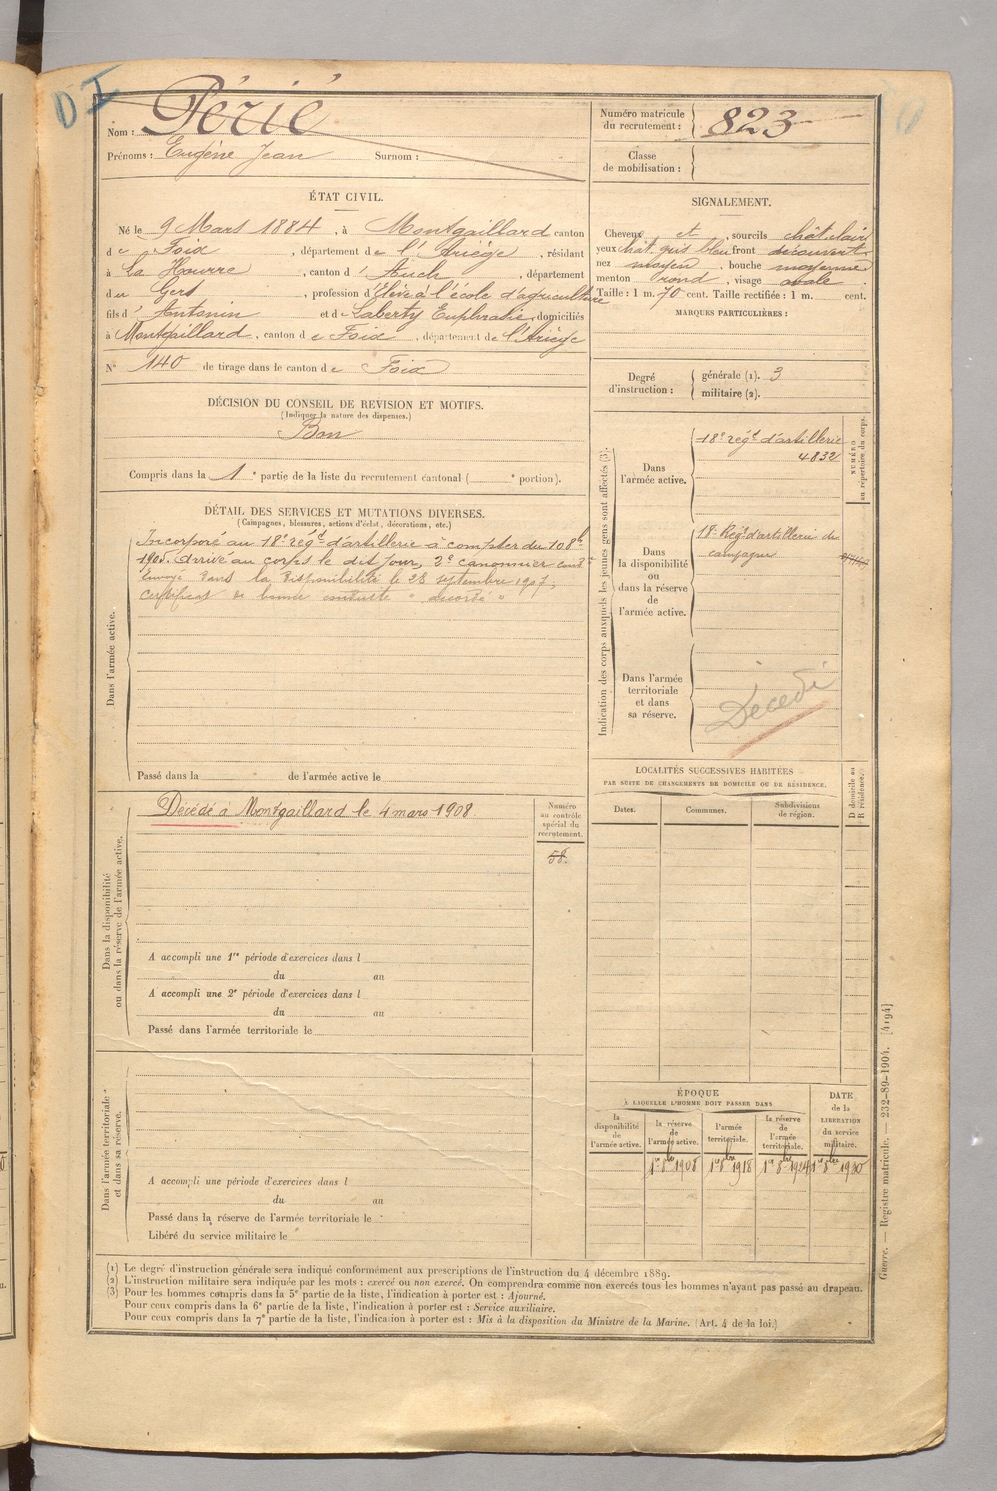 DI
Nom : Périé
Prénoms : Eugène Jean Surnom :
Numéro matricule du recrutement : 823
Classe de mobilisation :
ÉTAT CIVIL.
Né le 9 Mars 1884, à Montgaillard canton
de Foix, département de l'Ariège, résidant
à La Hourre, canton d'Auch, département
du Gers, profession d'Elève à l'école d'agriculture
fils d'Antonin et de Laberty Euphrasie, domiciliés
à Montgaillard, canton de Foix, département de l'Ariège
N° 140 de tirage dans le canton de Foix
SIGNALEMENT.
Cheveux et, sourcils chât. clairs
yeux chât. gris bleu front découvert
nez moyen, bouche moyenne
menton rond, visage ovale.
Taille : 1 m. 70 cent. Taille rectifiée : 1 m. cent.
MARQUES PARTICULIÈRES :
Degré d'instruction : générale (1). 3
militaire (2).
DÉCISION DU CONSEIL DE REVISION ET MOTIFS.
(Indiquer la nature des dispenses.)
Bon
Compris dans la 1e partie de la liste du recrutement cantonal ( e portion).
DÉTAIL DES SERVICES ET MUTATIONS DIVERSES.
(Campagnes, blessures, actions d'éclat, décorations, etc.)
Dans l'armée active.
Incorporé au 18e régt d'artillerie à compter du 10 8bre
1905. Arrivé au corps le dit jour, 2e canonnier cond.
Envoyé dans la disponibilité le 28 septembre 1907,
certificat de bonne conduite "accordé"
Passé dans la de l'armée active le
Indication des corps auxquels les jeunes gens sont affectés (3).
NUMÉRO au répertoire du corps.
Dans l'armée active.
18e régt d'artillerie
4832
Dans la disponibilité ou dans la réserve de l'armée active.
18e Régt d'artillerie de
campagne
Dans l'armée territoriale et dans sa réserve.
Décédé
Dans la disponibilité ou dans la réserve de l'armée active.
Décédé à Montgaillard le 4 mars 1908.
Numéro au contrôle spécial du recrutement.
58.
A accompli une 1re période d'exercices dans l
du au
A accompli une 2e période d'exercices dans l
du au
Passé dans l'armée territoriale le
LOCALITÉS SUCCESSIVES HABITÉES
PAR SUITE DE CHANGEMENTS DE DOMICILE OU DE RÉSIDENCE.
Dates. Communes. Subdivisions de région.
D domicile ou R résidence.
Dans l'armée territoriale et dans sa réserve.
A accompli une période d'exercices dans l
du au
Passé dans la réserve de l'armée territoriale le
Libéré du service militaire le
ÉPOQUE
À LAQUELLE L'HOMME DOIT PASSER DANS
la disponibilité de l'armée active.
la réserve de l'armée active.
l'armée territoriale.
la réserve de l'armée territoriale.
DATE de la LIBÉRATION du service militaire.
1er 8bre 1908 1er 8bre 1918 1er 8bre 1924 1er 8bre 1930
(1) Le degré d'instruction générale sera indiqué conformément aux prescriptions de l'instruction du 4 décembre 1889.
(2) L'instruction militaire sera indiquée par les mots : exercé ou non exercé. On comprendra comme non exercés tous les hommes n'ayant pas passé au drapeau.
(3) Pour les hommes compris dans la 5e partie de la liste, l'indication à porter est : Ajourné.
Pour ceux compris dans la 6e partie de la liste, l'indication à porter est : Service auxiliaire.
Pour ceux compris dans la 7e partie de la liste, l'indication à porter est : Mis à la disposition du Ministre de la Marine. (Art. 4 de la loi.)
Guerre. — Registre matricule. — 232-89-1904. [4194]